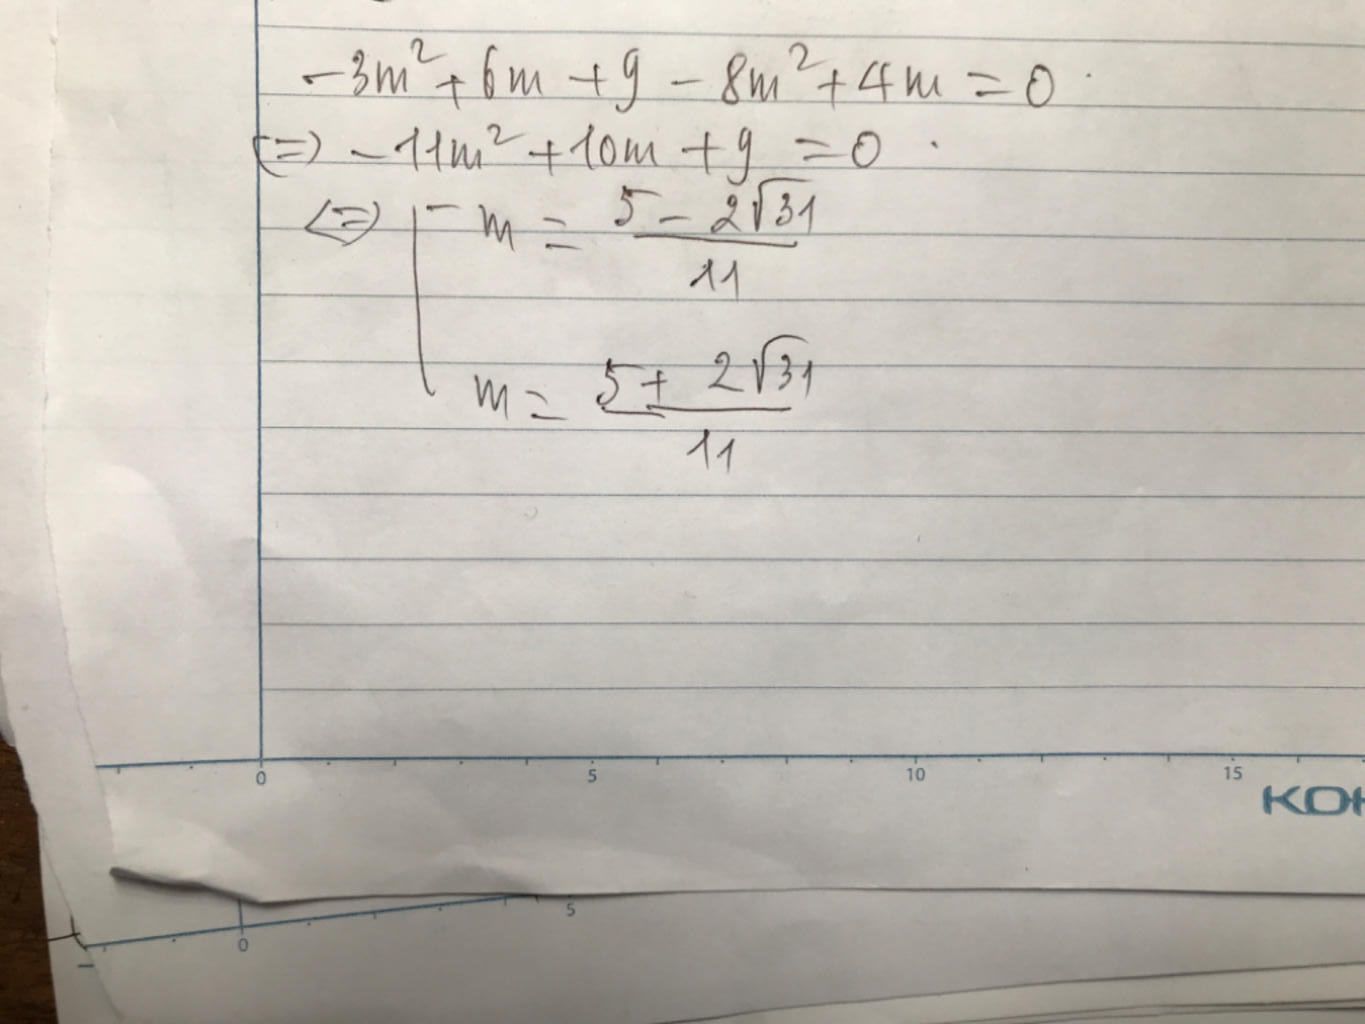 -3m² + 6m + 9 - 8m² + 4m = 0.
(=) -11m² + 10m + 9 = 0.
<=> [ m = (5 - 2√31)/11
m = (5 + 2√31)/11
0 5 10 15
KOK
0 5